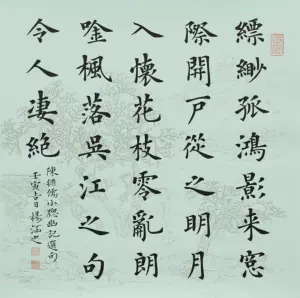 縹緲孤鴻影来窓
際開戶從之明月
入懷花枝零亂朗
唫楓落吳江之句
令人凄絕
陳繼儒小牕幽記選句
壬寅吉日楊